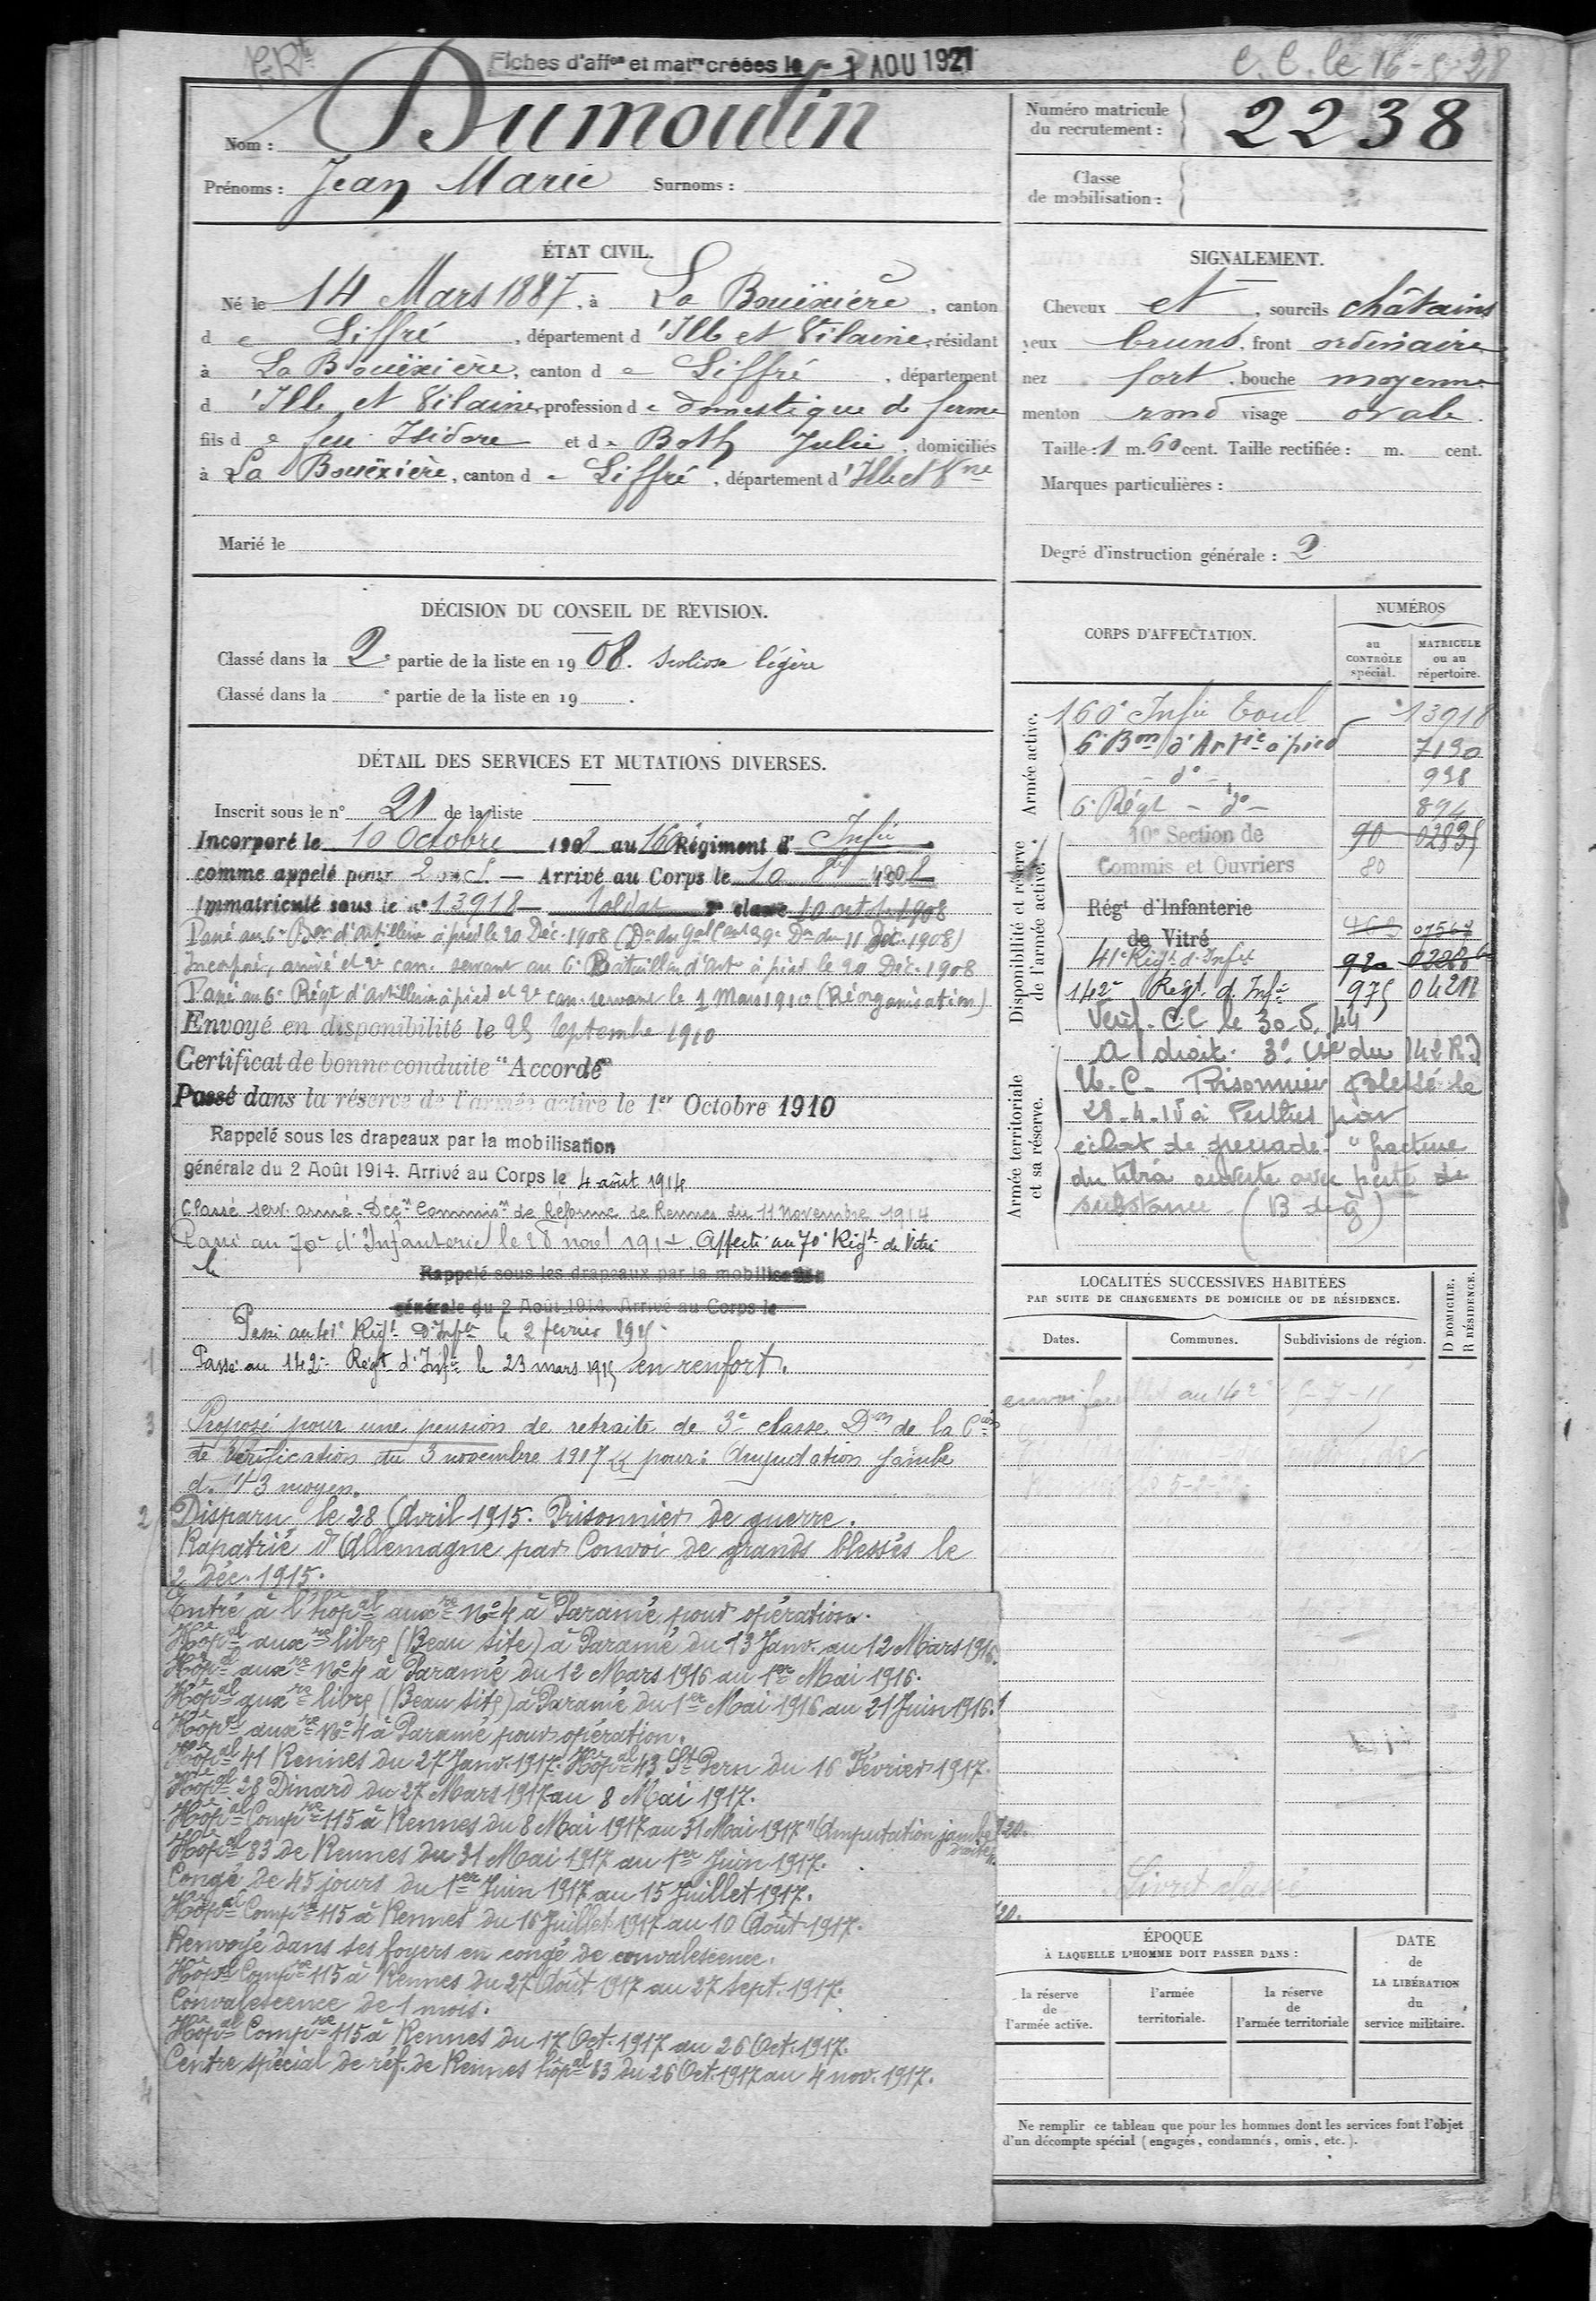 Fiches d'affon et matre créées le 1 AOU 1921
C. C. le 16-5-28
Nom : Dumoulin
Prénoms : Jean Marie Surnoms :
Numéro matricule
du recrutement : 2238
Classe
de mobilisation :
ÉTAT CIVIL.
Né le 14 Mars 1887, à La Bouëxière, canton
de Liffré, département d'Ille et Vilaine, résidant
à La Bouëxière, canton de Liffré, département
d'Ille et Vilaine, profession de domestique de ferme
fils de feu Isidore et de Both Julie, domiciliés
à La Bouëxière, canton de Liffré, département d'Ille et Vne
Marié le
SIGNALEMENT.
Cheveux et, sourcils châtains
yeux bruns, front ordinaire
nez fort, bouche moyenne
menton rond visage ovale.
Taille : 1 m. 60 cent. Taille rectifiée : m. cent.
Marques particulières :
Degré d'instruction générale : 2
DÉCISION DU CONSEIL DE REVISION.
Classé dans la 2e partie de la liste en 1908. scoliose légère
Classé dans la e partie de la liste en 19 .
DÉTAIL DES SERVICES ET MUTATIONS DIVERSES.
Inscrit sous le n° 21 de la liste
Incorporé le 10 Octobre 1908 au 160 Régiment d' Infie
comme appelé pour 2 ans. — Arrivé au Corps le 10 8bre 1908
Immatriculé sous le n° 13918 — Soldat 2e classe 10 octob. 1908
Passé au 6e Bon d'Artillerie à pied le 20 Déc. 1908 (Don du Gal Cant Dn du 11 Déc. 1908)
Incorporé, arrivé et 2e can. servant au 6e Bataillon d'Arte à pied le 20 Déc. 1908
Passé au 6e Régt d'artillerie à pied et 2e can. servant le 1 Mars 1910 (Réorganisation)
Envoyé en disponibilité le 25 Septembre 1910
Certificat de bonne conduite "Accordé"
Passé dans la réserve de l'armée active le 1er Octobre 1910
Rappelé sous les drapeaux par la mobilisation
générale du 2 Août 1914. Arrivé au Corps le 4 août 1914
Classé serv. armé. Décon Commison de Réforme de Rennes du 11 novembre 1914
Passé au 70e d'Infanterie le 28 novt 1914. Affecté au 70e Régt de Vitré
le
Rappelé sous les drapeaux par la mobilisation
générale du 2 Août 1914. Arrivé au Corps le
Passé au 41e Régt D'Infie le 2 fevrier 1915.
Passé au 142e Régt d'Infie le 23 mars 1915 en renfort.
Proposé pour une pension de retraite de 3e classe Don de la Con
de Vérification du 3 novembre 1917 pour: Amputation jambe
d. 1/3 moyen.
Disparu le 28 Avril 1915. Prisonnier de guerre.
Rapatrié d'Allemagne par Convoi de grands blessés le
2 déc. 1915.
Entré à l'hôpal auxre No 4 à Paramé pour opération.
Hôpal auxre libre (Beau site) à Paramé du 13 Janv. au 12 Mars 1916.
Hôpal auxre No 4 à Paramé du 12 Mars 1916 au 1er Mai 1916.
Hôpal auxre libre (Beau site) à Paramé du 1er Mai 1916 au 21 Juin 1916.
Hôpal auxre No 4 à Paramé pour opération.
Hôpal 41 Rennes du 27 Janv. 1917. Hôpal 43 St Pern du 16 Février 1917.
Hôpal 28 Dinard du 27 Mars 1917 au 8 Mai 1917.
Hôpal Compre 115 à Rennes du 8 Mai 1917 au 31 Mai 1917 "Amputation jambe droite".
Hôpal 83 de Rennes du 31 Mai 1917 au 1er Juin 1917.
Congé de 45 jours du 1er Juin 1917 au 15 Juillet 1917.
Hôpal Compre 115 à Rennes du 16 Juillet 1917 au 10 Août 1917.
Renvoyé dans ses foyers en congé de convalescence.
Hôpal Compre 115 à Rennes du 27 Août 1917 au 27 sept. 1917.
Convalescence de 1 mois.
Hôpal Compre 115 à Rennes du 17 Oct. 1917 au 26 Oct. 1917.
Centre spécial de réf. de Rennes hôpal 83 du 26 Oct. 1917 au 4 nov. 1917.
CORPS D'AFFECTATION.
NUMÉROS
au
CONTRÔLE
spécial.
MATRICULE
ou au
répertoire.
Armée active.
160e Infie Toul 13918
6e Bon d'Artie à pied 7190
- do - 938
6e Régt - do - 894
Disponibilité et réserve
de l'armée active.
10e Section de 90 02835
Commis et Ouvriers 80
Régt d'Infanterie
de Vitré 07567
41e Régt d'Infie 920
142e Regt d'Infie 975
Vérif. C.C le 30.5.44
Armée territoriale
et sa réserve.
A droit. 3e Cie du 142 R.I
U. C. Prisonnier Blessé le
28-4-15 à Perthes par
éclat de grenade. "fracture
du tibia ouverte avec perte de
substance. (B de g)
LOCALITÉS SUCCESSIVES HABITÉES
PAR SUITE DE CHANGEMENTS DE DOMICILE OU DE RÉSIDENCE.
D DOMICILE.
R RÉSIDENCE.
Dates. Communes. Subdivisions de région.
au 142e
Livret classé
ÉPOQUE
À LAQUELLE L'HOMME DOIT PASSER DANS :
la réserve
de
l'armée active.
l'armée
territoriale.
la réserve
de
l'armée territoriale
DATE
de
LA LIBÉRATION
du
service militaire.
Ne remplir ce tableau que pour les hommes dont les services font l'objet
d'un décompte spécial (engagés, condamnés, omis, etc.).